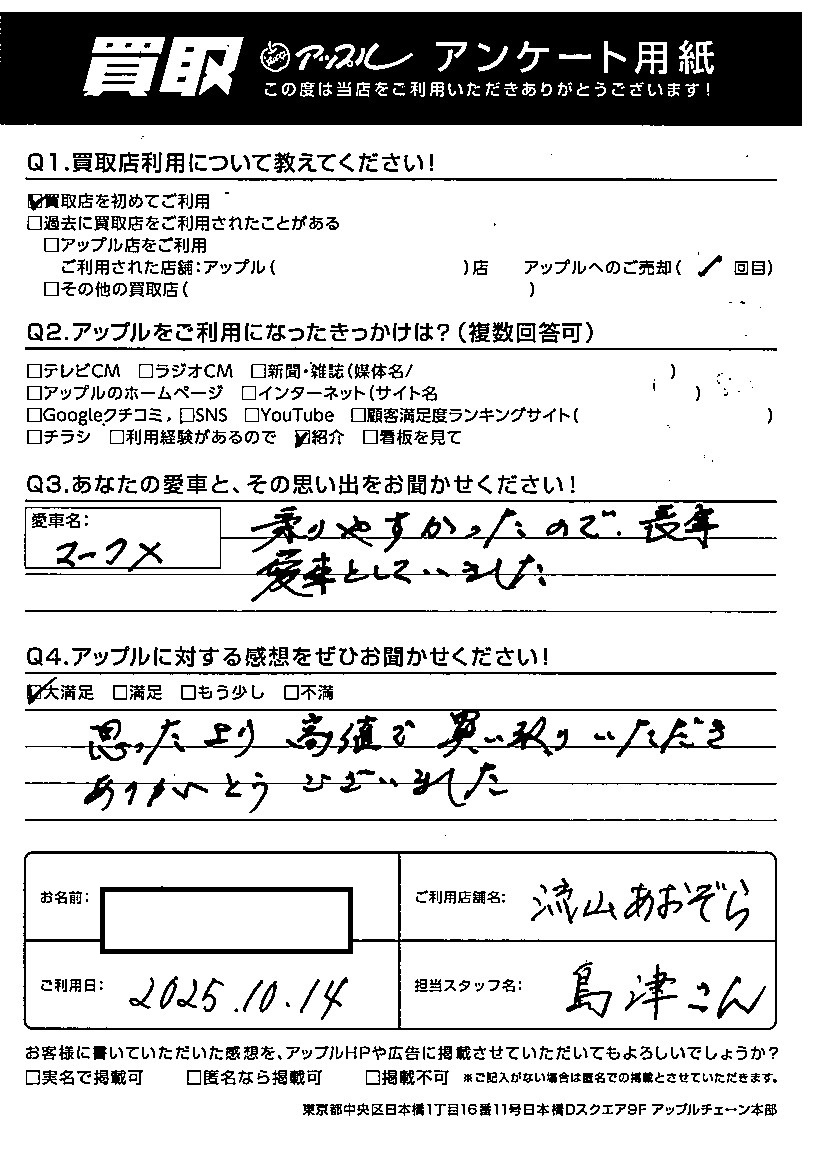 買取 アップル アンケート用紙
この度は当店をご利用いただきありがとうございます!
Q1.買取店利用について教えてください!
☑買取店を初めてご利用
□過去に買取店をご利用されたことがある
□アップル店をご利用
ご利用された店舗:アップル( )店 アップルへのご売却( 1 回目)
□その他の買取店( )
Q2.アップルをご利用になったきっかけは?(複数回答可)
□テレビCM □ラジオCM □新聞・雑誌(媒体名/ )
□アップルのホームページ □インターネット(サイト名 )
□Googleクチコミ, □SNS □YouTube □顧客満足度ランキングサイト( )
□チラシ □利用経験があるので ☑紹介 □看板を見て
Q3.あなたの愛車と、その思い出をお聞かせください!
愛車名:
マークX
乗りやすかったので、長年
愛車としていました
Q4.アップルに対する感想をぜひお聞かせください!
☑大満足 □満足 □もう少し □不満
思ったより高値で買い取りいただき
ありがとうございました
お名前:
ご利用店舗名: 流山あおぞら
ご利用日: 2025.10.14
担当スタッフ名: 島津さん
お客様に書いていただいた感想を、アップルHPや広告に掲載させていただいてもよろしいでしょうか?
□実名で掲載可 □匿名なら掲載可 □掲載不可 ※ご記入がない場合は匿名での掲載とさせていただきます。
東京都中央区日本橋1丁目16番11号日本橋Dスクエア9F アップルチェーン本部